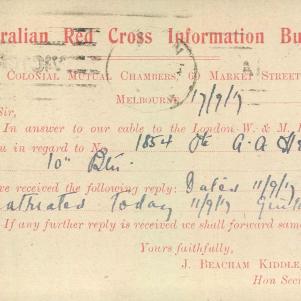 ralian Red Cross Information Bu
Colonial Mutual Chambers, 60 Market Street
Melbourne, 17/9/17
Sir,
In answer to our cable to the London W. & M. 
u in regard to No 1854 Pte A. A.
10" Btn.
ve received the following reply: Dated 11/9/17
Today 11/9/17
If any further reply is received we shall forward same
Yours faithfully,
J. Beacham Kiddle
Hon Secr